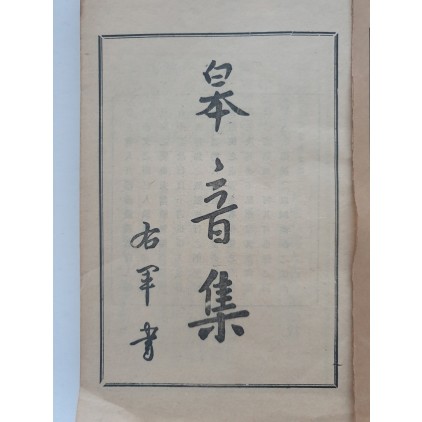 皋音集
右军书